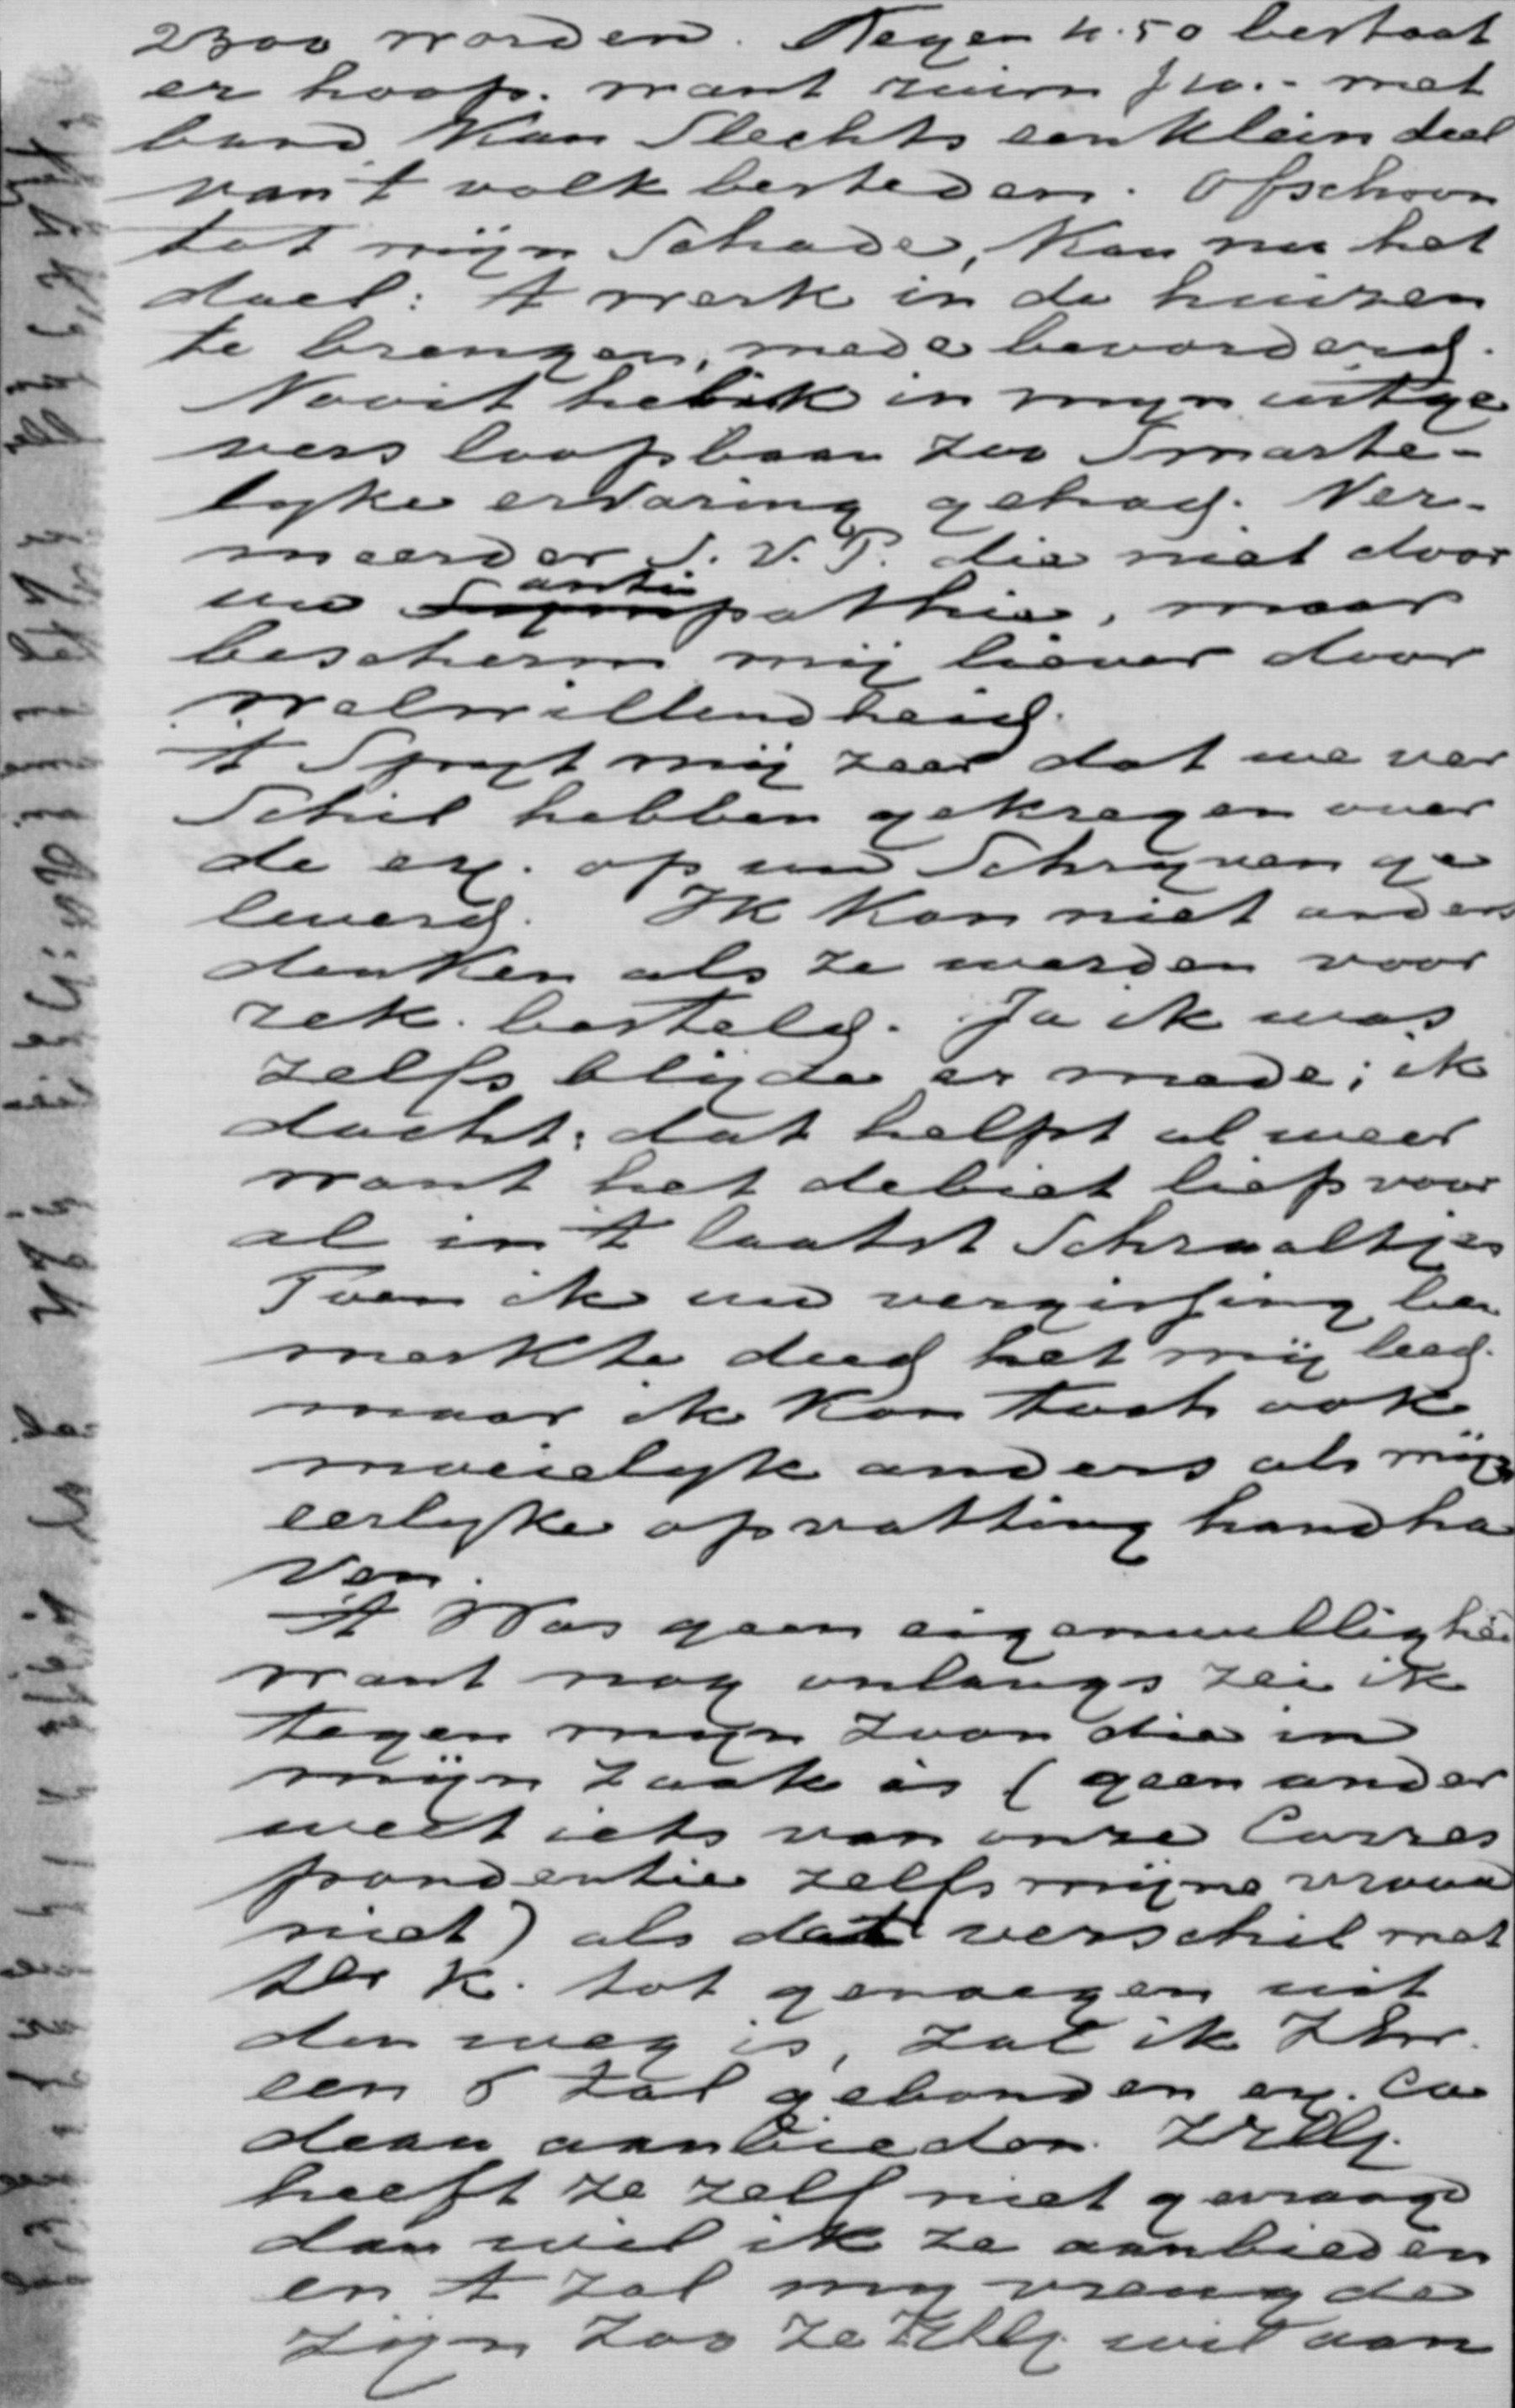 2300 worden. Tegen 4.50 bestaat
er hoop. want ruim f 10.- met
band kan Slechts een klein deel
van 't volk besteden. Ofschoon
tot mijn Schade, kan nu het
doel: 't werk in de huizen
te brengen, mede bevorderd.
Nooit heb ik in myn uitge
vers loopbaan zoo Smarte-
lyke ervaring gehad. Ver-
meerder S.V.P. die niet door
uw antipathie, maar
bescherm mij liever door
welwillendheid.
't Spyt mij zeer dat we ver
Schil hebben gekregen over
de ex. op uw Schryven ge
leverd. Ik kon niet anders
denken als ze werden voor
rek. besteld. Ja ik was
zelfs blijde er mede; ik
dacht: dat helpt al weer
want het debiet liep voor
al in 't laatst Schraaltjes
Toen ik uw vergissing be
merkte deed het mij leed.
maar ik kon toch ook
moeielyk anders als mijn
eerlyke opvatting handha
ven.
't Was geen eigenwilligheid
want nog onlangs zei ik
tegen mijn zoon die in
mijn zaak is (geen ander
weet iets van onze Corres
pondentie zelfs mijne vrouw
niet) als dat verschil met
ter K. tot genoegen uit
den weg is, zal ik ZEw.
een 6 tal gebonden ex. ca
deau aanbieden. ZEd.
heeft ze zelf niet gevraagd
dan wil ik ze aanbieden
en 't zal my vreugde
zijn zoo ze ZEd. wil aan